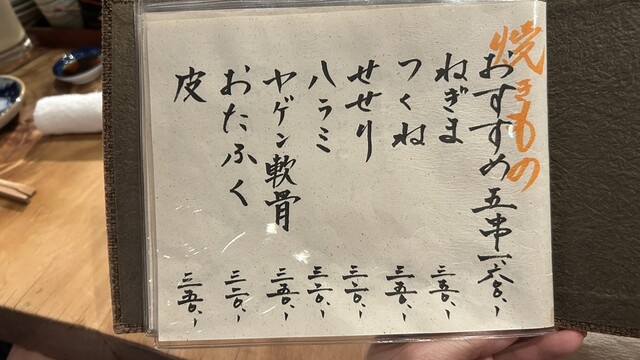 焼きもの
おすすめ五串 一六〇〇、-
ねぎま 三五〇、-
つくね 三五〇、-
せせり 三二〇、-
ハラミ 三二〇、-
ヤゲン軟骨 三五〇、-
おたふく 三二〇、-
皮 三五〇、-